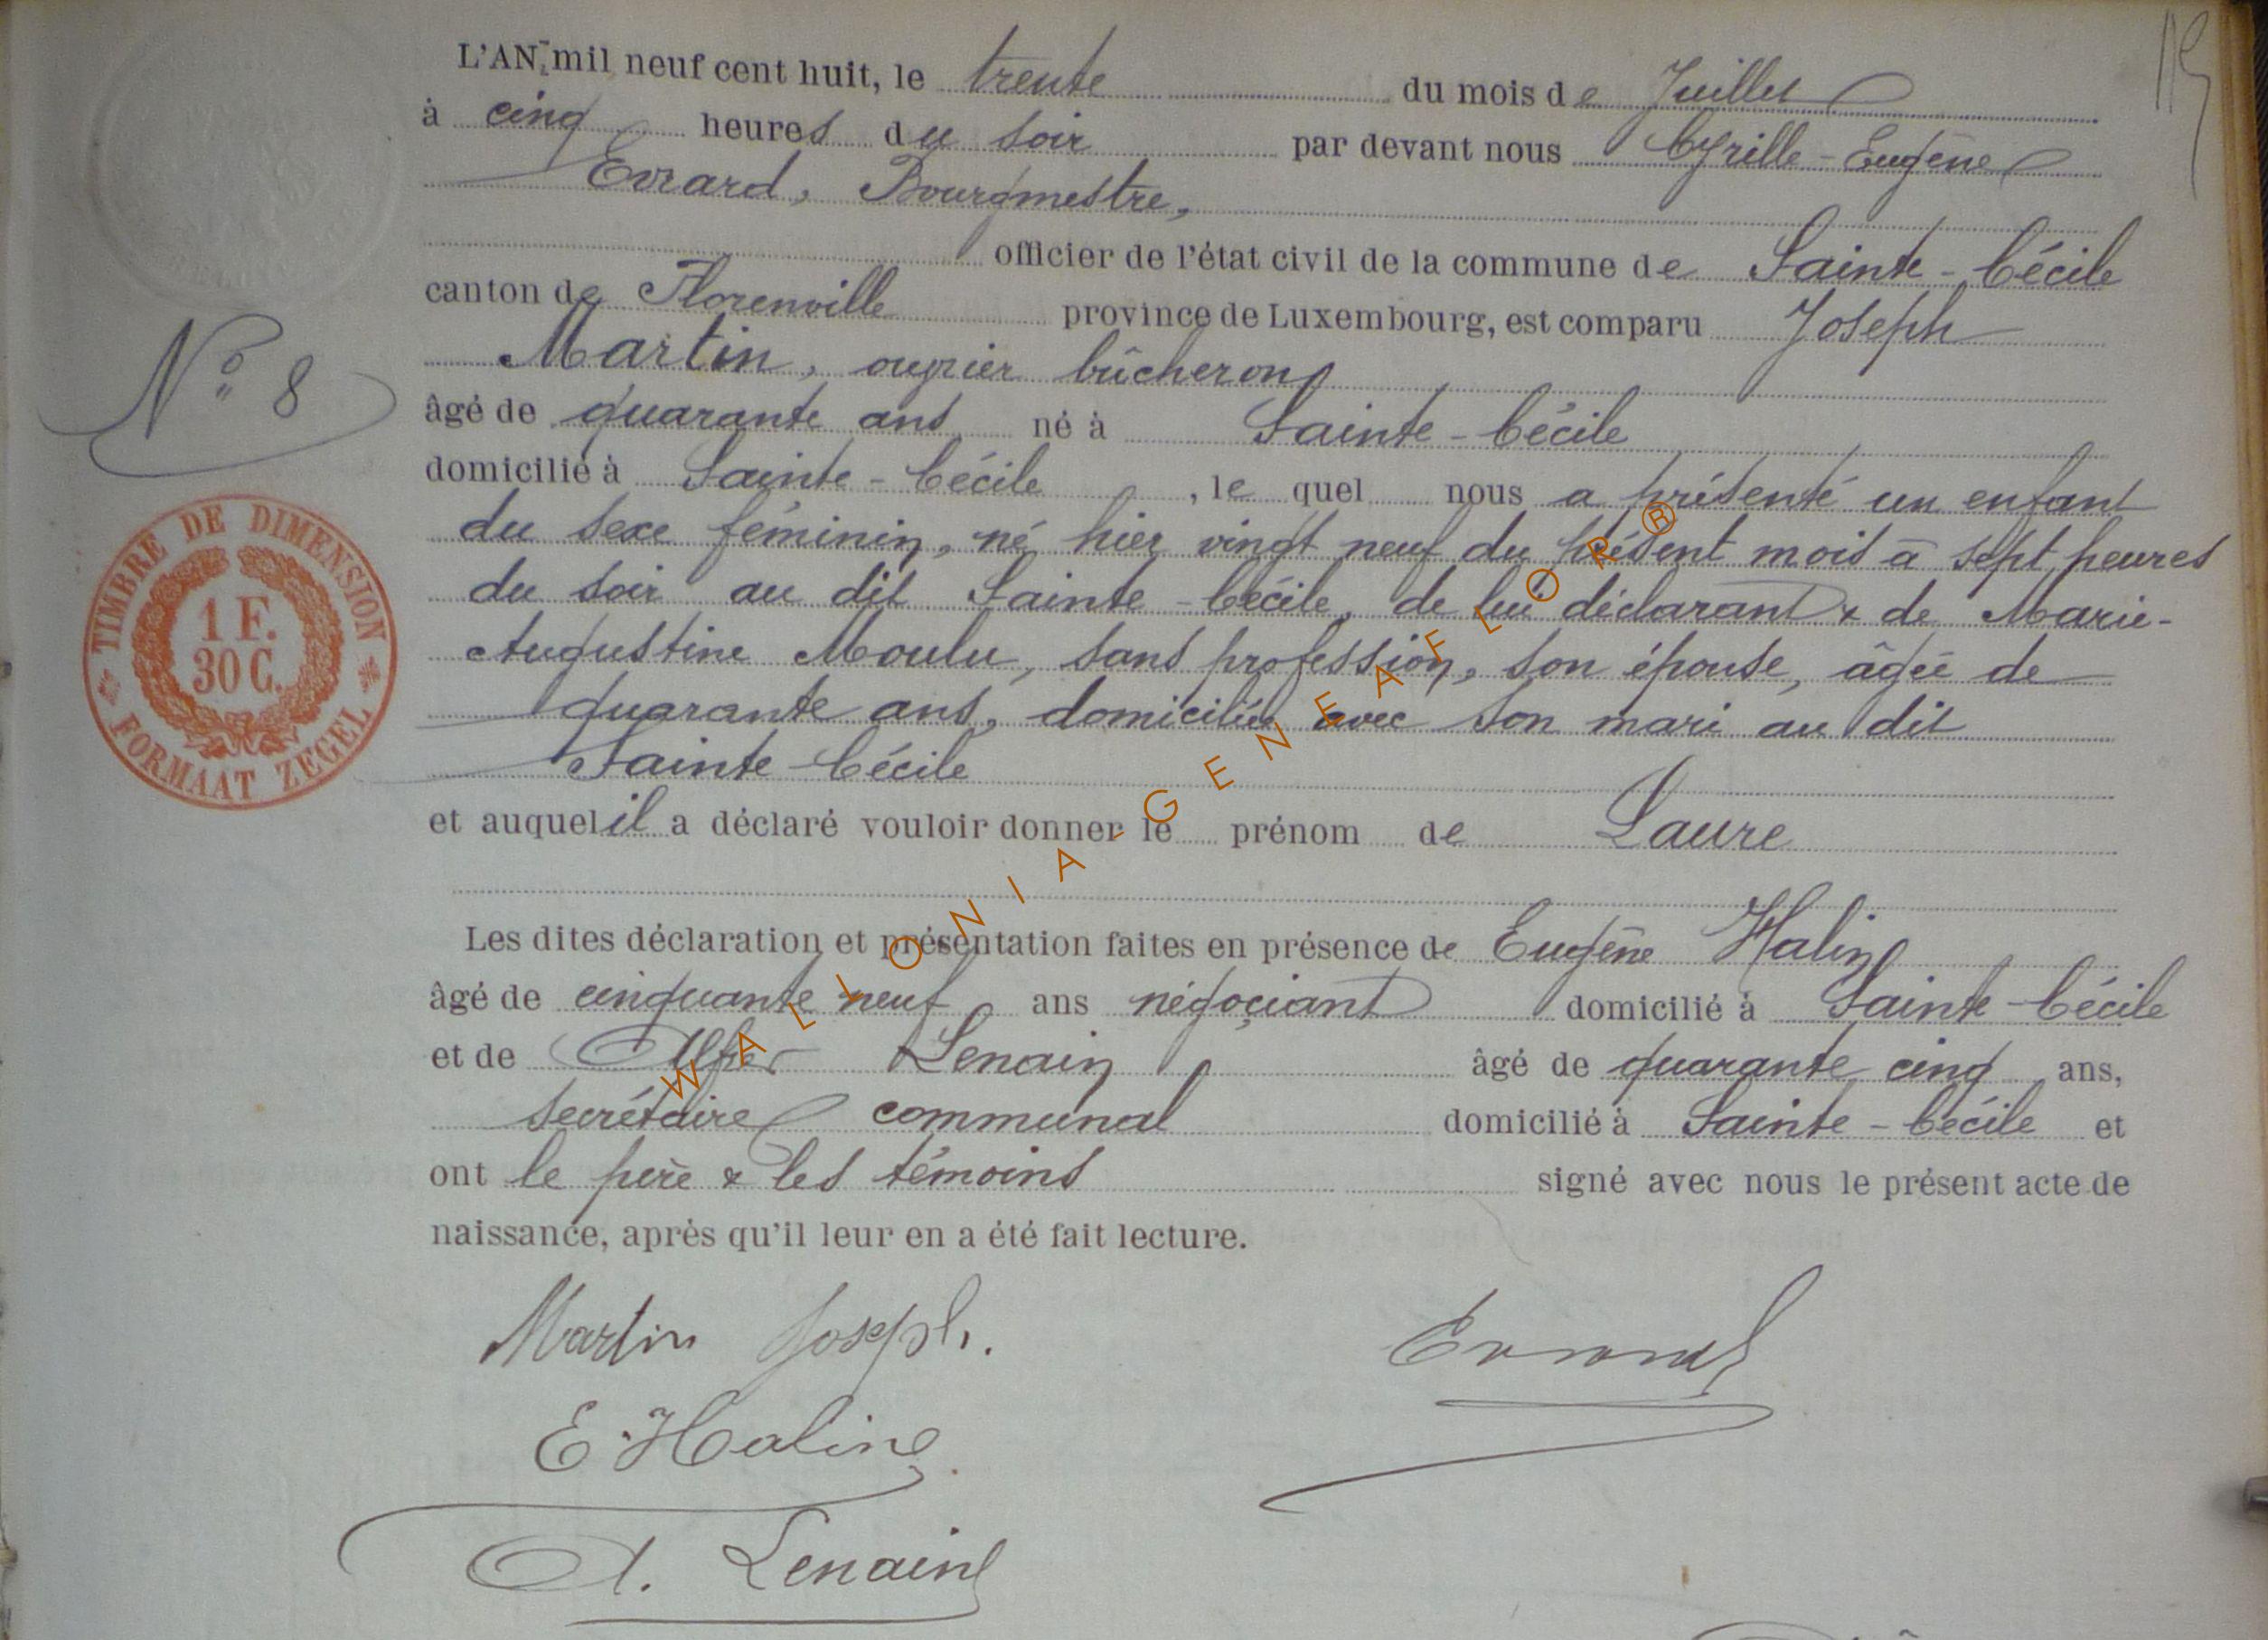 115
L'AN mil neuf cent huit, le trente du mois de Juillet
à cinq heures du soir par devant nous Cyrille-Eugène
Evrard, Bourgmestre,
officier de l'état civil de la commune de Sainte-Cécile
canton de Florenville province de Luxembourg, est comparu Joseph
Martin, ouvrier bûcheron
N° 8
âgé de quarante ans né à Sainte-Cécile
domicilié à Sainte-Cécile, le quel nous a présenté un enfant
du sexe féminin, né hier vingt neuf du présent mois à sept heures
du soir au dit Sainte-Cécile, de lui déclarant & de Marie-
Augustine Moulu, sans profession, son épouse, âgée de
quarante ans, domiciliée avec son mari au dit
Sainte-Cécile
et auquel il a déclaré vouloir donner le prénom de Laure
Les dites déclaration et présentation faites en présence de Eugène Halin
âgé de cinquante neuf ans négociant domicilié à Sainte-Cécile
et de Alfred Lenain âgé de quarante cinq ans,
secrétaire communal domicilié à Sainte-Cécile et
ont le père & les témoins signé avec nous le présent acte de
naissance, après qu'il leur en a été fait lecture.
Martin Joseph.
Evrard
E. Haline
A. Lenain
TIMBRE DE DIMENSION
1 F.
30 C.
FORMAAT ZEGEL
WALLONIA-GENEAFLOR®